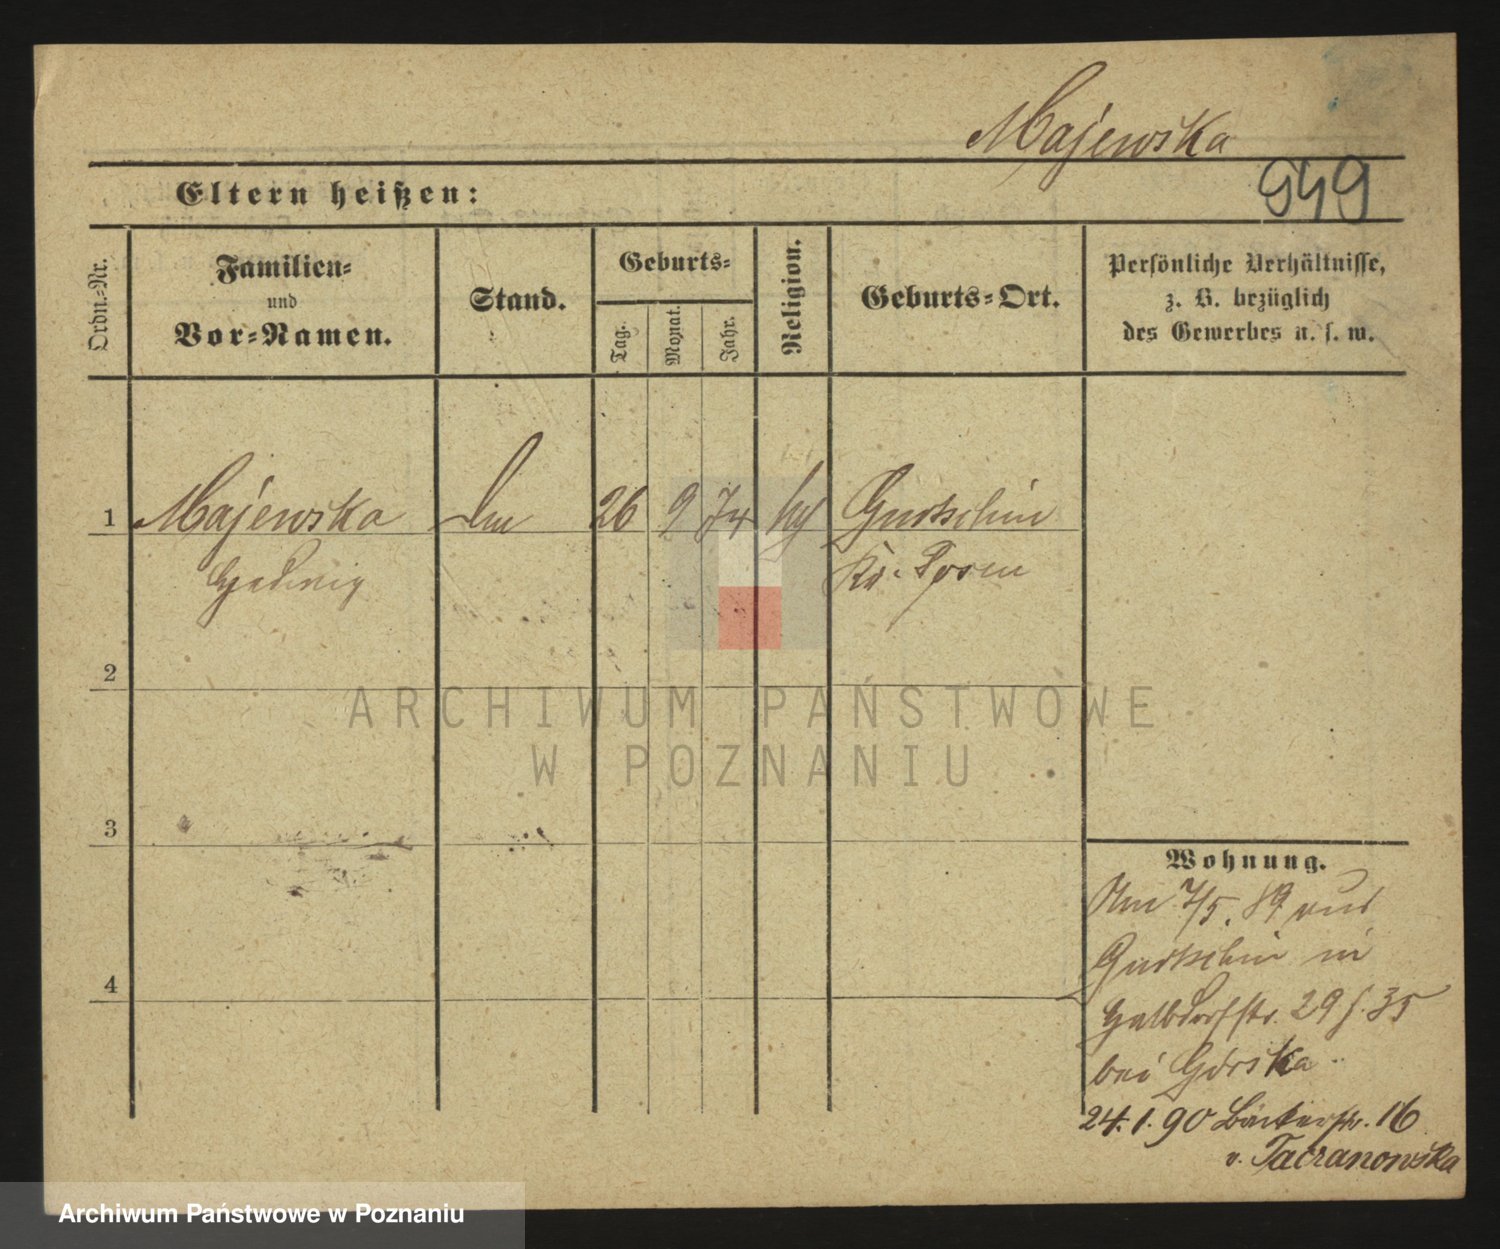 Majewska
949
Eltern heißen:
Ordn.-Nr.
Familien-
und
Vor-Namen.
Stand.
Geburts-
Tag.
Monat.
Jahr.
Religion.
Geburts-Ort.
Persönliche Verhältnisse,
z. B. bezüglich
des Gewerbes u. s. w.
1
Majewska
26
9
74
Gurtschin
Hedwig
Kr. Posen
2
3
4
Wohnung.
Am 7/5. 89 aus
Gurtschin in
Halbdorfstr. 29
bei Górska
24.1.90 Bäckerstr. 16
v. Taczanowska
ARCHIWUM PAŃSTWOWE
W POZNANIU
Archiwum Państwowe w Poznaniu